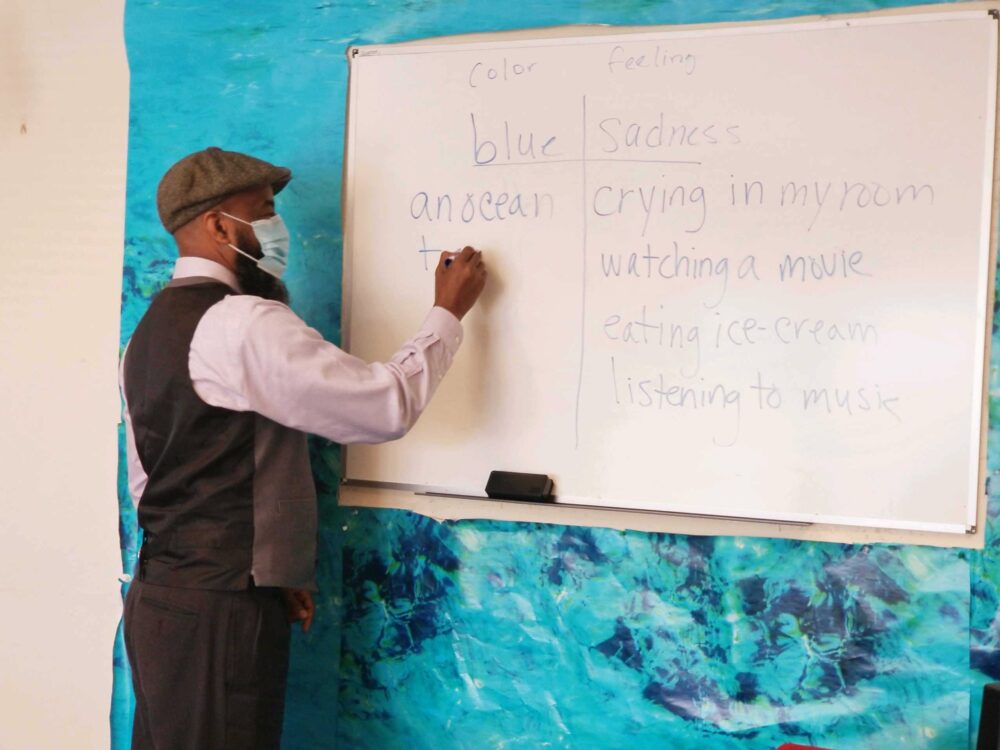 color feeling
blue sadness
an ocean crying in my room
t watching a movie
eating ice-cream
listening to music